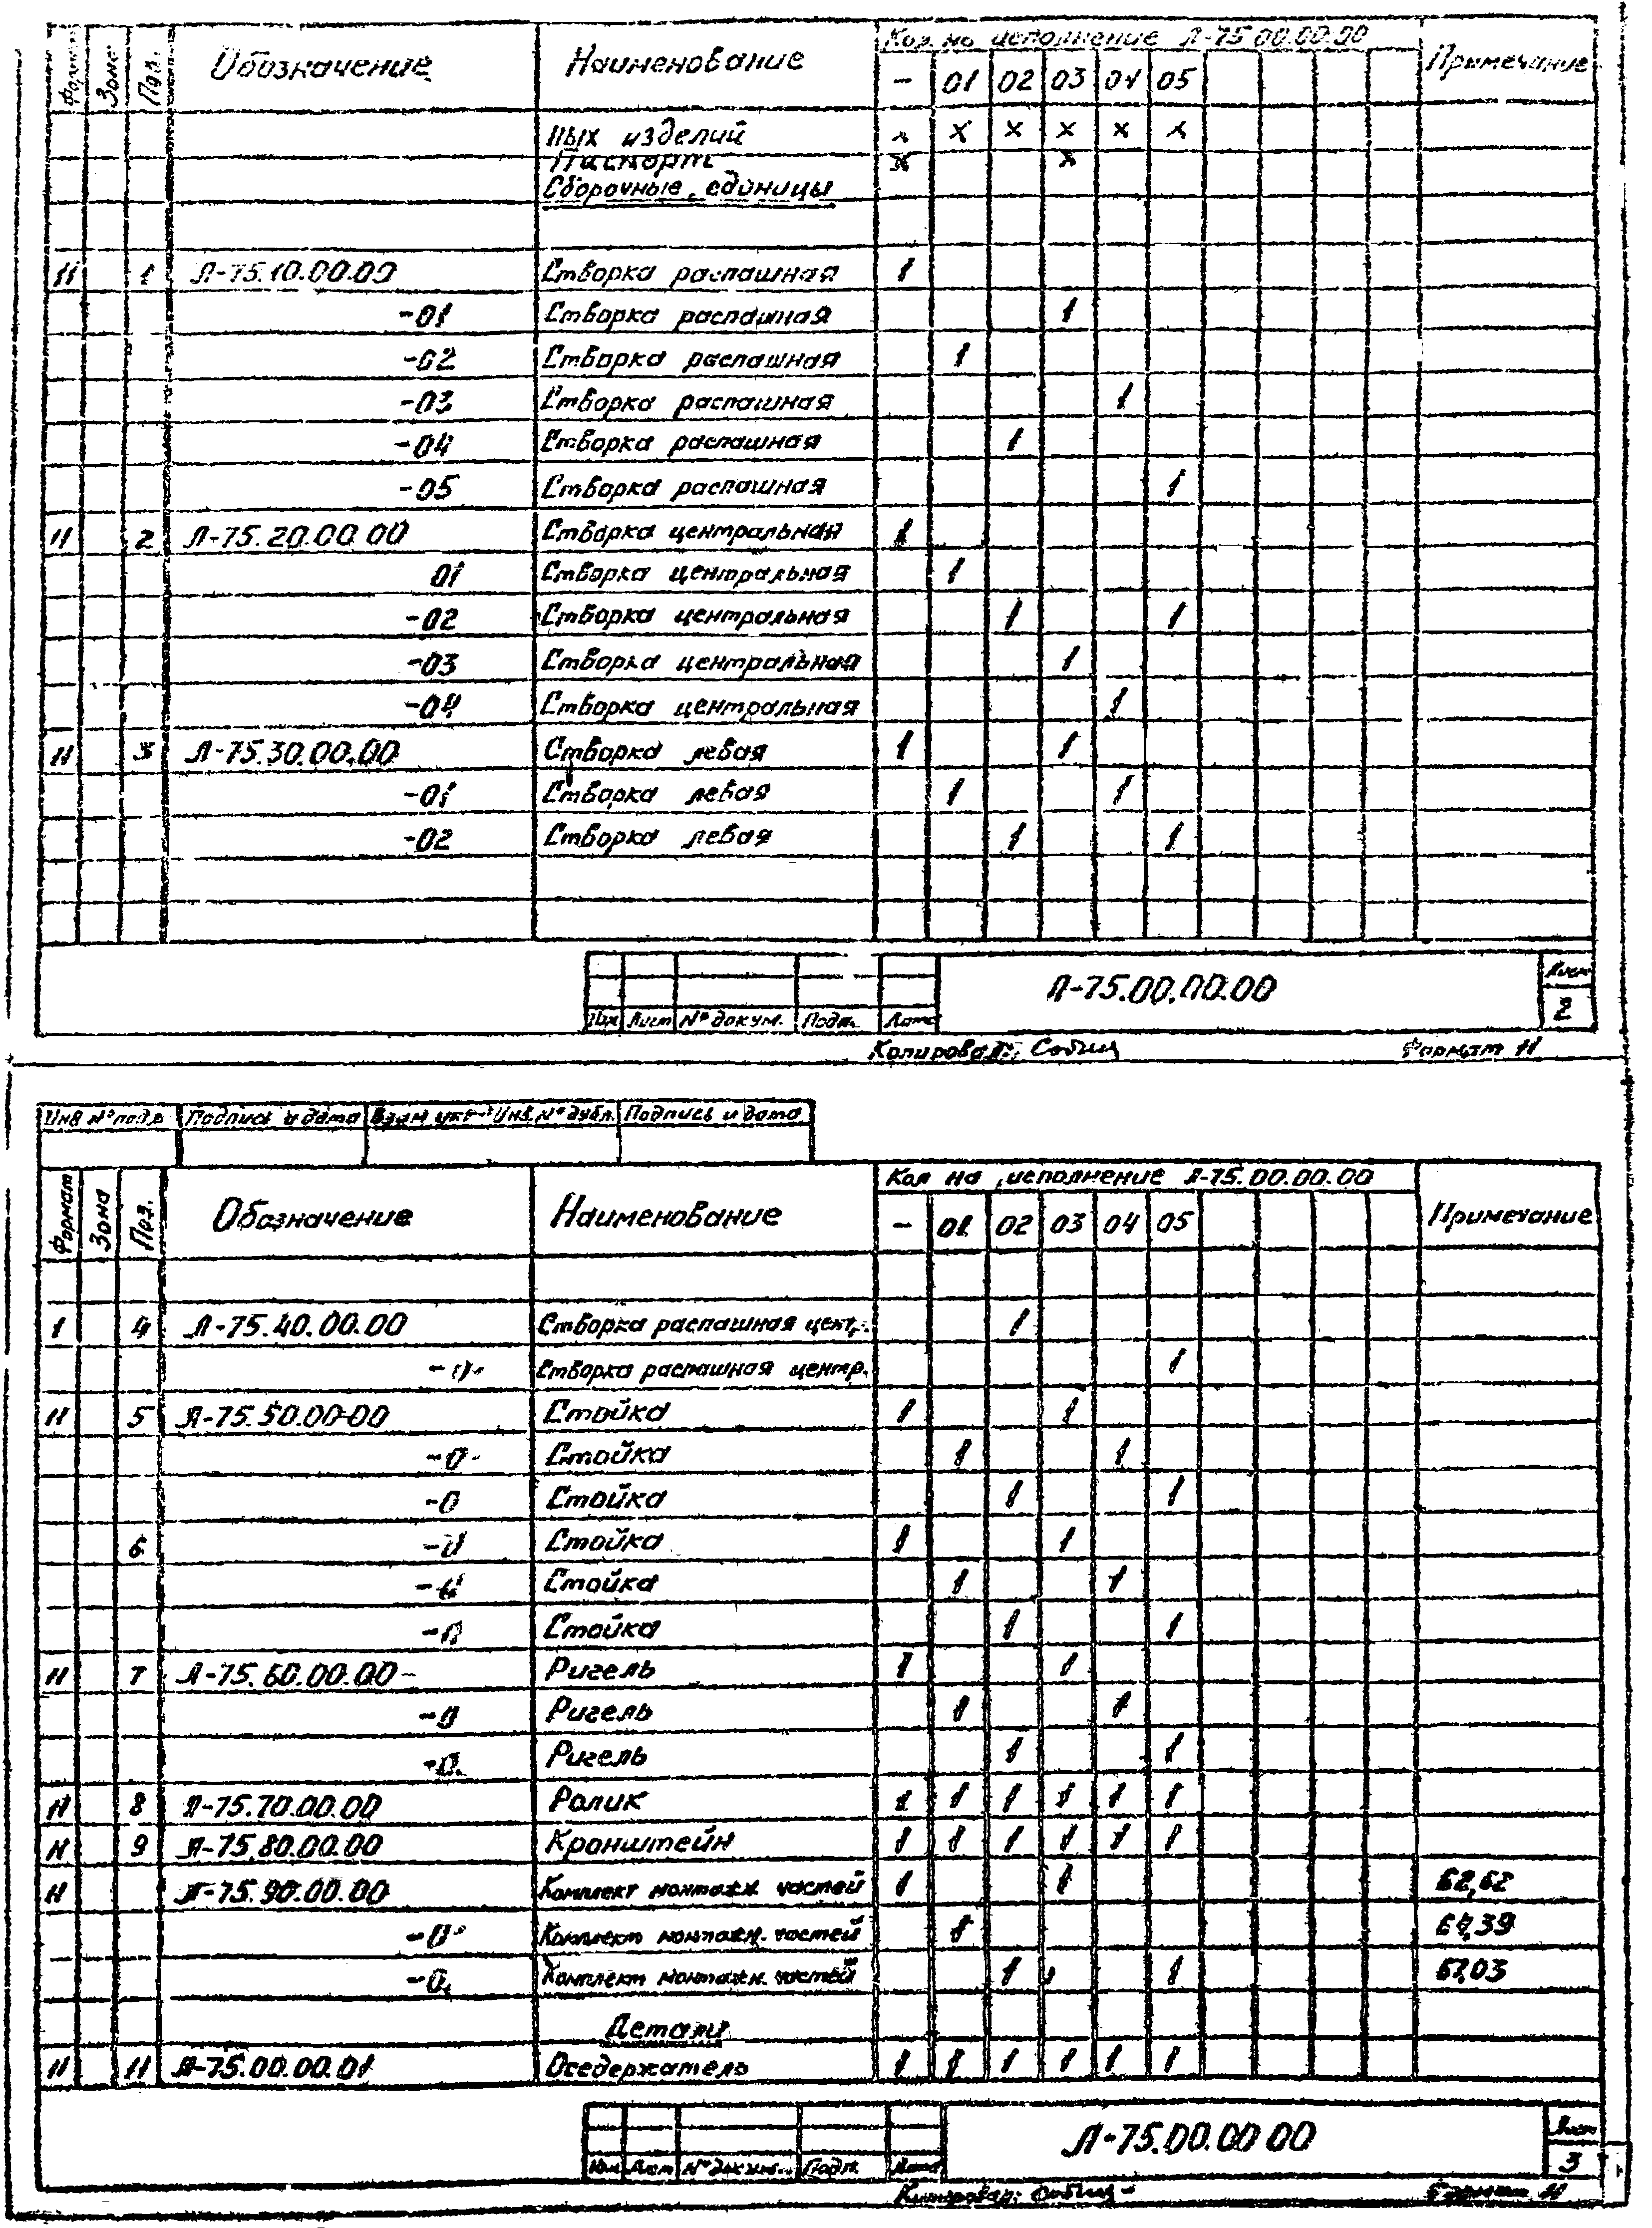 Кол. на исполнение Л-75.00.00.00
Формат Зона Поз. Обозначение Наименование - 01 02 03 04 05 Примечание
ных изделий х х х х х х
Паспорт х х
Сборочные единицы
11 1 Л-75.10.00.00 Створка распашная 1
-01 Створка распашная 1
-02 Створка распашная 1
-03 Створка распашная 1
-04 Створка распашная 1
-05 Створка распашная 1
11 2 Л-75.20.00.00 Створка центральная 1
01 Створка центральная 1
-02 Створка центральная 1 1
-03 Створка центральная 1
-04 Створка центральная 1
11 3 Л-75.30.00.00 Створка левая 1 1
-01 Створка левая 1 1
-02 Створка левая 1 1
Л-75.00.00.00 Лист
2
Изм Лист № докум. Подп. Дата
Копировал: Формат 11
Инв № подл Подпись и дата Взам инв № Инв. № дубл. Подпись и дата
Кол на исполнение Л-75.00.00.00
Формат Зона Поз. Обозначение Наименование - 01 02 03 04 05 Примечание
1 4 Л-75.40.00.00 Створка распашная центр. 1
-0 Створка распашная центр. 1
11 5 Л-75.50.00-00 Стойка 1 1
-0 Стойка 1 1
-0 Стойка 1 1
6 -0 Стойка 1 1
Стойка 1 1
-0 Стойка 1 1
11 7 Л-75.60.00.00 Ригель 1 1
-0 Ригель 1 1
-0 Ригель 1 1
11 8 Л-75.70.00.00 Ролик 1 1 1 1 1 1
11 9 Л-75.80.00.00 Кронштейн 1 1 1 1 1 1
11 Л-75.90.00.00 Комплект монтажн. частей 1 1 62,62
-0 Комплект монтажн. частей 1 64,39
-0 Комплект монтажн. частей 1 1 67,03
Детали
11 11 Л-75.00.00.01 Оседержатель 1 1 1 1 1 1
Л-75.00.00 00 Лист
3
Изм Лист № докум. Подп. Дата
Копировал: Формат 11